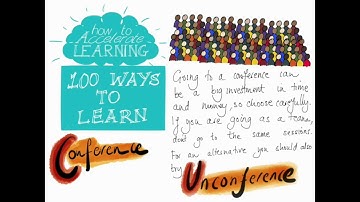 how to
Accelerate
LEARNING
100 WAYS
TO
LEARN
Conference
Going to a conference can
be a big investment in time
and money, so choose carefully.
If you are going as a team,
dont go to the same sessions.
For an alternative you should also
try
Unconference